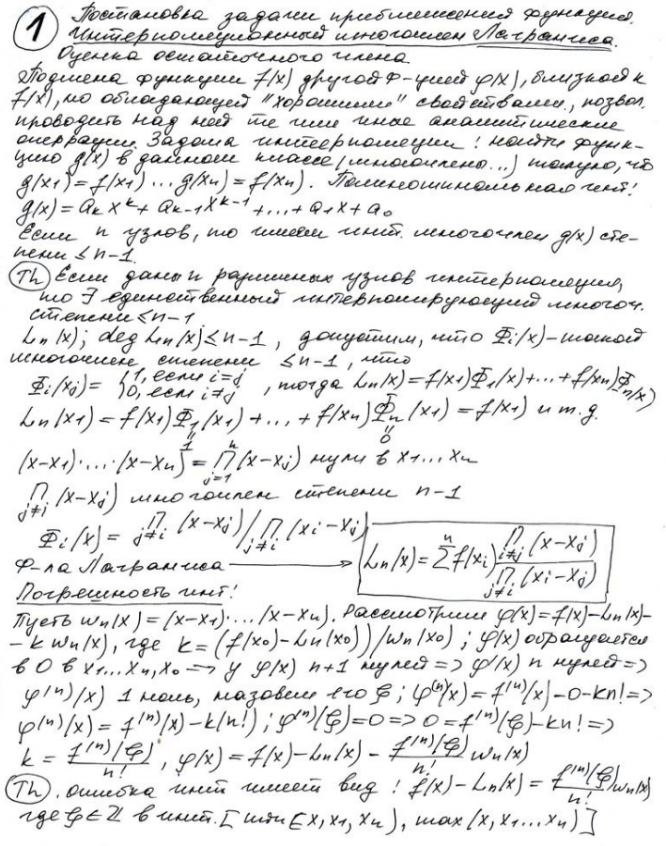 1 Постановка задачи приближения функций.
Интерполяционный многочлен Лагранжа.
Оценка остаточного члена
Подмена функции f(x) другой ф-цией φ(x), близкой к
f(x), но обладающей "хорошими" свойствами, позвол.
проводить над ней те или иные аналитические
операции. Задача интерполяции: найти функ-
цию g(x) в данном классе (многочлены...) такую, что
g(x1) = f(x1) ... g(xn) = f(xn). Полиномиальная инт:
g(x) = aₖxᵏ + aₖ₋₁xᵏ⁻¹ + ... + a₁x + a₀
Если n узлов, то имеем инт. многочлен g(x) сте-
пени ≤ n-1.
Th Если даны n различных узлов интерполяции,
то ∃ единственный интерполирующий многоч.
степени ≤ n-1
Ln(x); deg Ln(x) ≤ n-1, допустим, что Фi(x) - такой
многочлен степени ≤ n-1, что
Фi(xj) = {1, если i=j 0, если i≠j, тогда Ln(x) = f(x1)Ф1(x) + ... + f(xn)Фn(x)
Ln(x1) = f(x1)Ф1(x1) + ... + f(xn)Фn(x1) = f(x1) и т.д.
" 1 " 0
(x-x1)·...·(x-xn) = ∏ⁿⱼ₌₁(x-xj) нули в x1...xn
∏j≠i(x-xj) многочлен степени n-1
Фi(x) = ∏j≠i(x-xj) / ∏j≠i(xi-xj)
Ф-ла Лагранжа → Ln(x) = Σⁿ f(xi) ∏i≠j(x-xj) / ∏j≠i(xi-xj)
Погрешность инт:
Пусть wn(x) = (x-x1)·...(x-xn). Рассмотрим φ(x) = f(x)-Ln(x)-
-k wn(x), где k = (f(x0)-Ln(x0))/wn(x0); φ(x) обращается
в 0 в x1...xn, x0 => у φ(x) n+1 нулей => φ'(x) n нулей =>
φ⁽ⁿ⁾(x) 1 ноль, назовем его ξ; φ⁽ⁿ⁾(x) = f⁽ⁿ⁾(x)-0-kn! =>
φ⁽ⁿ⁾(x) = f⁽ⁿ⁾(x)-k(n!); φ⁽ⁿ⁾(ξ)=0 => 0=f⁽ⁿ⁾(ξ)-kn! =>
k = f⁽ⁿ⁾(ξ)/n!, φ(x) = f(x)-Ln(x) - f⁽ⁿ⁾(ξ)/n! wn(x)
Th. ошибка инт имеет вид: f(x)-Ln(x) = f⁽ⁿ⁾(ξ)/n! wn(x)
где ξ ∈ в инт. [min(x, x1, xn), max(x, x1...xn)]